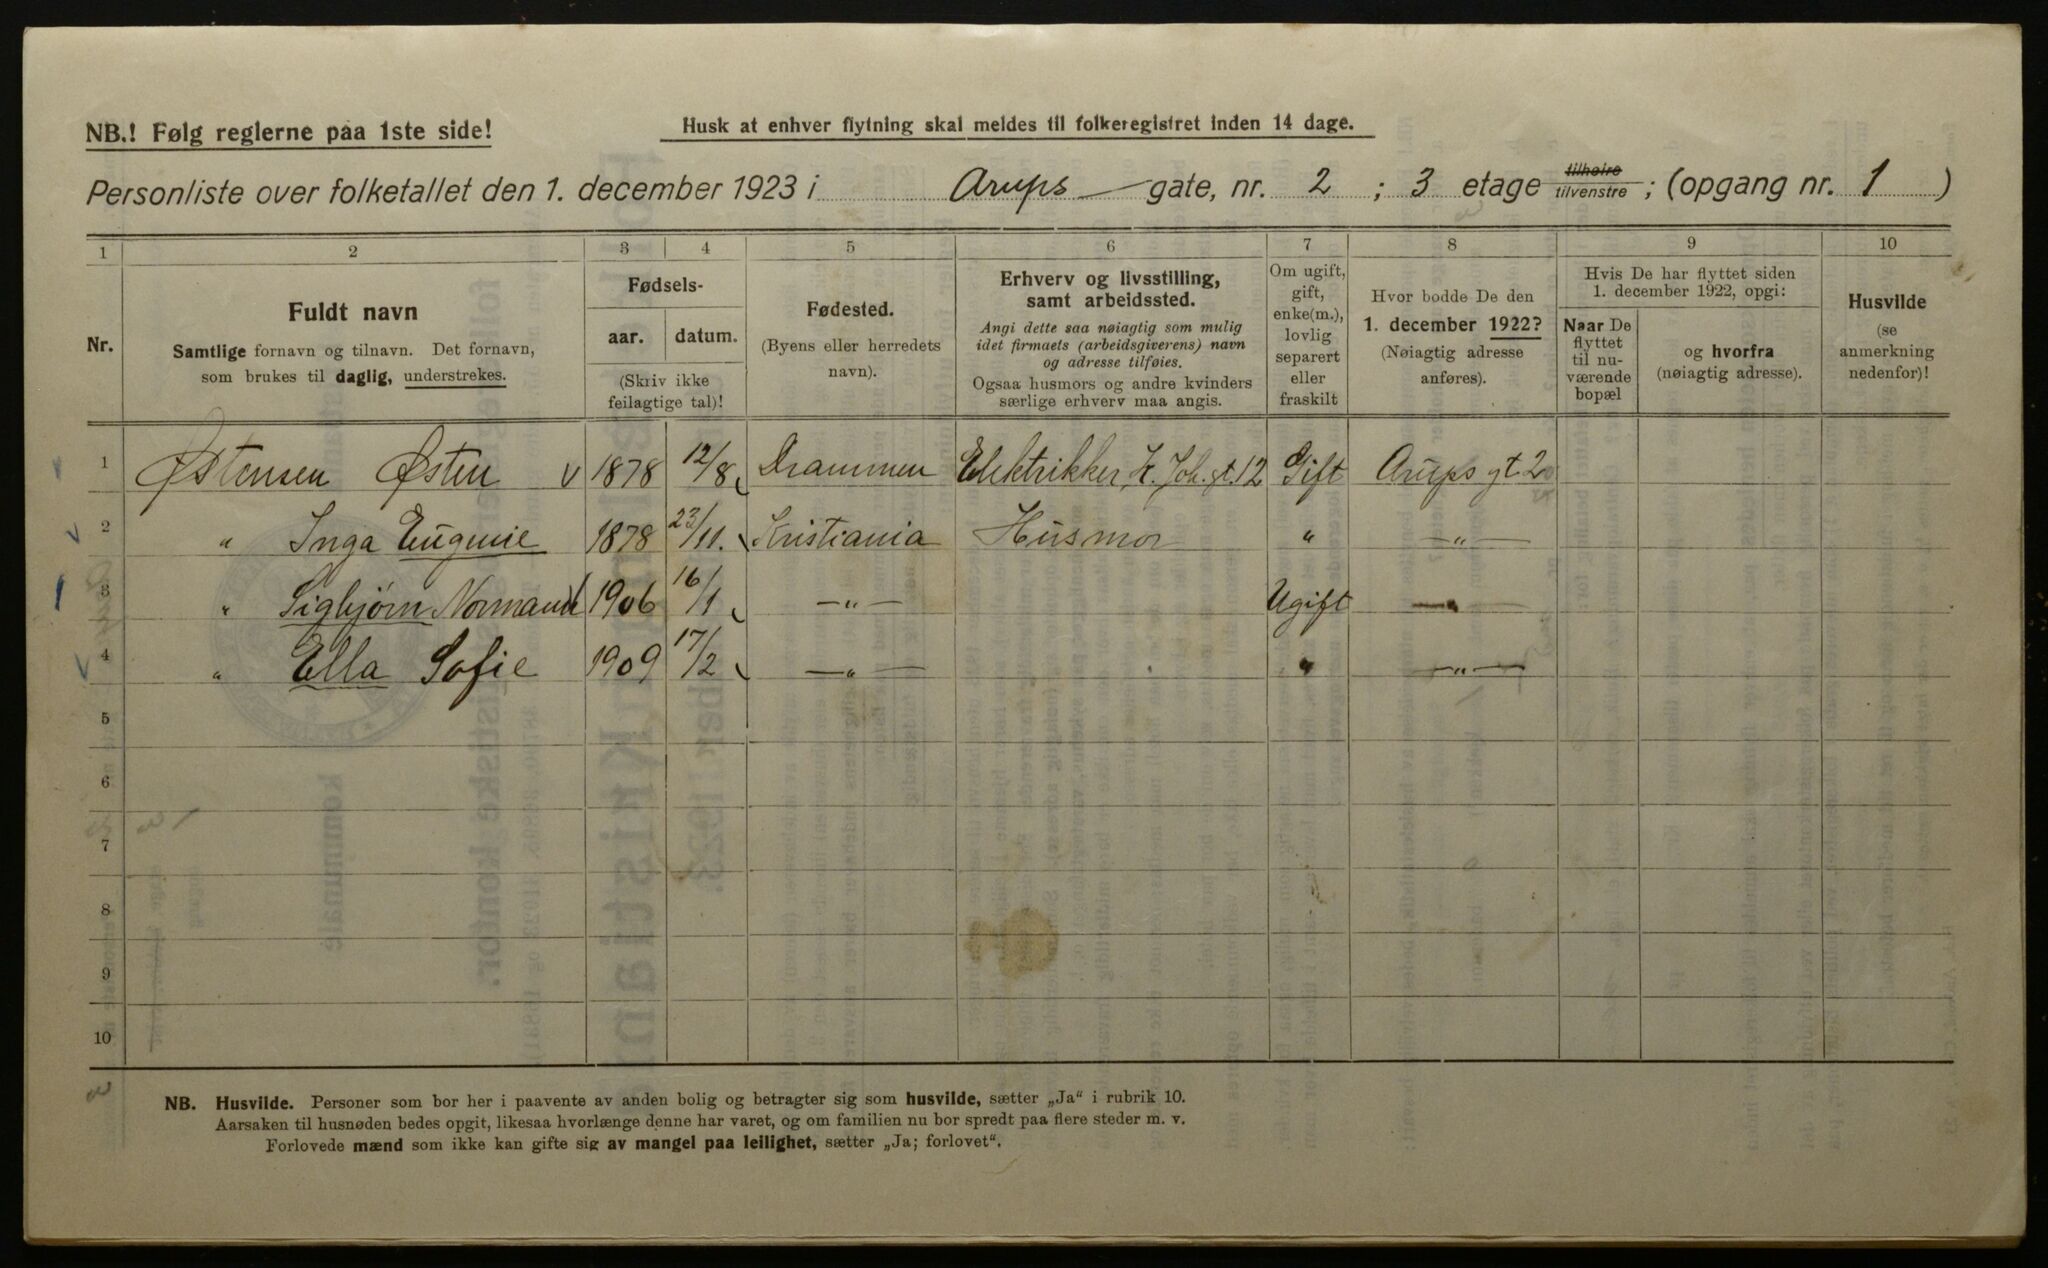 NB.! Følg reglerne paa 1ste side!
Husk at enhver flytning skal meldes til folkeregistret inden 14 dage.
Personliste over folketallet den 1. december 1923 i Arups gate, nr. 2 ; 3 etage tilhøire tilvenstre ; (opgang nr. 1 )
1 2 3 4 5 6 7 8 9 10
Nr.
Fuldt navn
Samtlige fornavn og tilnavn. Det fornavn,
som brukes til daglig, understrekes.
Fødsels-
aar. datum.
(Skriv ikke
feilagtige tal)!
Fødested.
(Byens eller herredets
navn).
Erhverv og livsstilling,
samt arbeidssted.
Angi dette saa nøiagtig som mulig
idet firmaets (arbeidsgiverens) navn
og adresse tilføies.
Ogsaa husmors og andre kvinders
særlige erhverv maa angis.
Om ugift,
gift,
enke(m.),
lovlig
separert
eller
fraskilt
Hvor bodde De den
1. december 1922?
(Nøiagtig adresse
anføres).
Hvis De har flyttet siden
1. december 1922, opgi:
Naar De
flyttet
til nu-
værende
bopæl
og hvorfra
(nøiagtig adresse).
Husvilde
(se
anmerkning
nedenfor)!
1 Østensen Østen v 1878 12/8 Drammen Elektrikker K. Joh. gt. 12 Gift Arups gt. 2
2 " Inga Eugenie 1878 23/11. Kristiania Husmor " —"—
3 " Sigbjørn Normann 1906 16/1 —"— Ugift —"—
4 " Ella Sofie 1909 17/2 —"— " —"—
5
6
7
8
9
10
NB. Husvilde. Personer som bor her i paavente av anden bolig og betragter sig som husvilde, sætter „Ja“ i rubrik 10.
Aarsaken til husnøden bedes opgit, likesaa hvorlænge denne har varet, og om familien nu bor spredt paa flere steder m. v.
Forlovede mænd som ikke kan gifte sig av mangel paa leilighet, sætter „Ja; forlovet“.